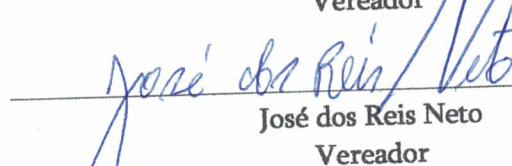 Vereador
José dos Reis Neto
José dos Reis Neto
Vereador